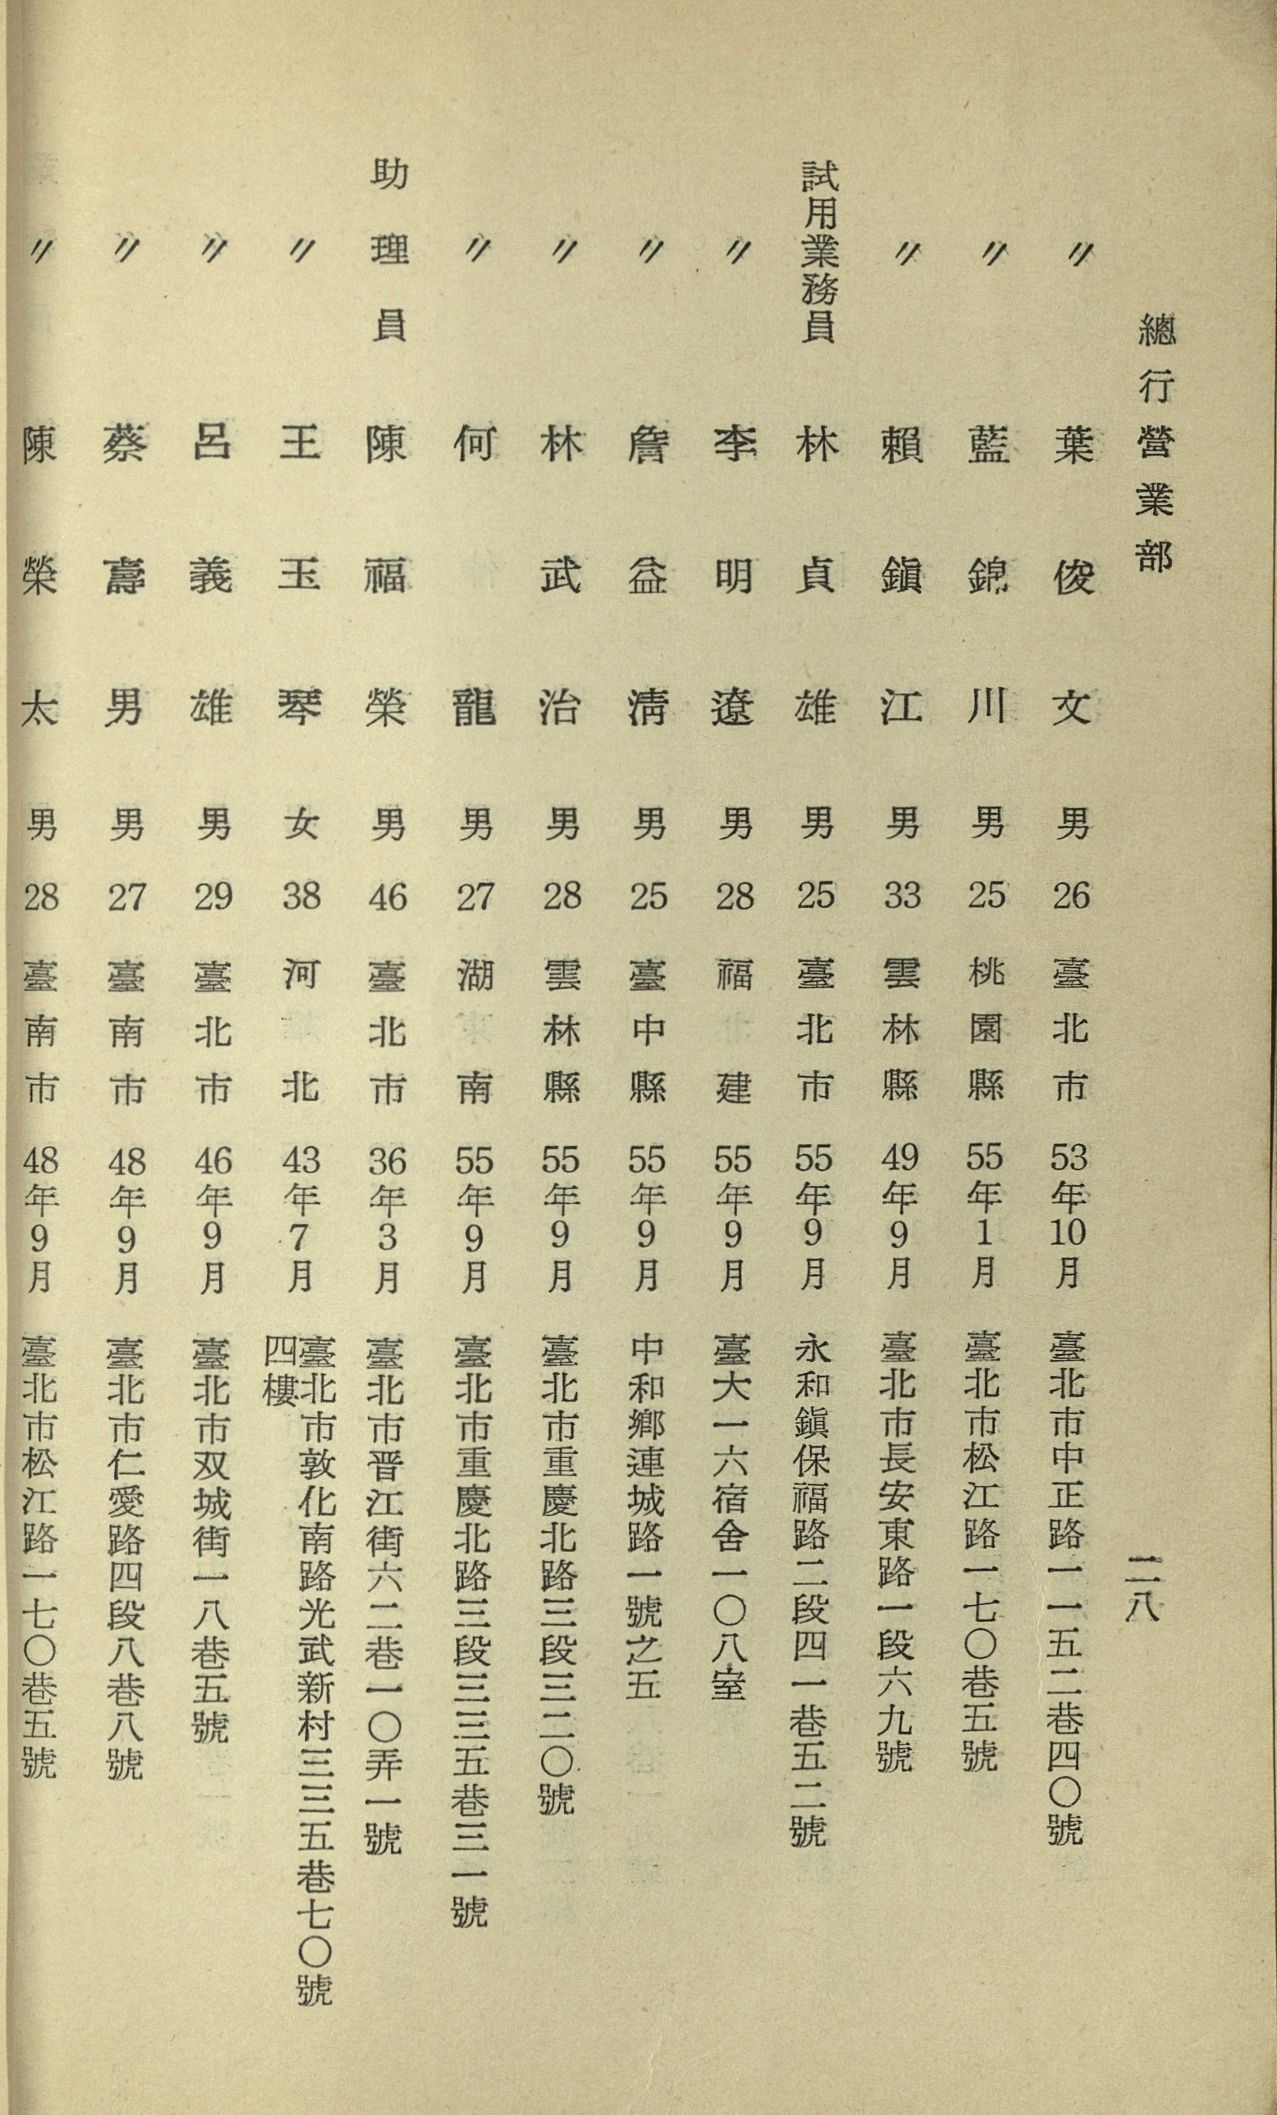 總行營業部
二八
〃 葉俊文 男 26 臺北市 53年10月 臺北市中正路一一五二巷四〇號
〃 藍錦川 男 25 桃園縣 55年1月 臺北市松江路一七〇巷五號
〃 賴鎭江 男 33 雲林縣 49年9月 臺北市長安東路一段六九號
試用業務員 林貞雄 男 25 臺北市 55年9月 永和鎭保福路二段四一巷五二號
〃 李明遼 男 28 福建 55年9月 臺大一六宿舍一〇八室
〃 詹益淸 男 25 臺中縣 55年9月 中和鄉連城路一號之五
〃 林武治 男 28 雲林縣 55年9月 臺北市重慶北路三段三二〇號
〃 何龍 男 27 湖南 55年9月 臺北市重慶北路三段三三五巷三一號
助理員 陳福榮 男 46 臺北市 36年3月 臺北市晋江街六二巷一〇弄一號
〃 王玉琴 女 38 河北 43年7月 臺北市敦化南路光武新村三三五巷七〇號
四樓
〃 呂義雄 男 29 臺北市 46年9月 臺北市双城街一八巷五號
〃 蔡壽男 男 27 臺南市 48年9月 臺北市仁愛路四段八巷八號
〃 陳榮太 男 28 臺南市 48年9月 臺北市松江路一七〇巷五號